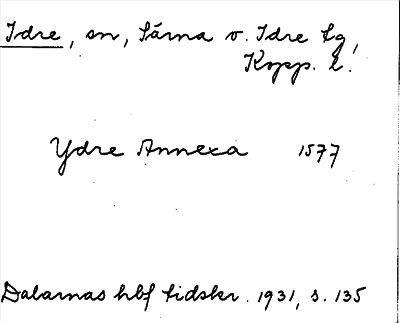 Idre, sn, Särna o. Idre tg,
Kopp. l.
Ydre Annexa 1577
Dalarnas hbf tidskr. 1931, s. 135